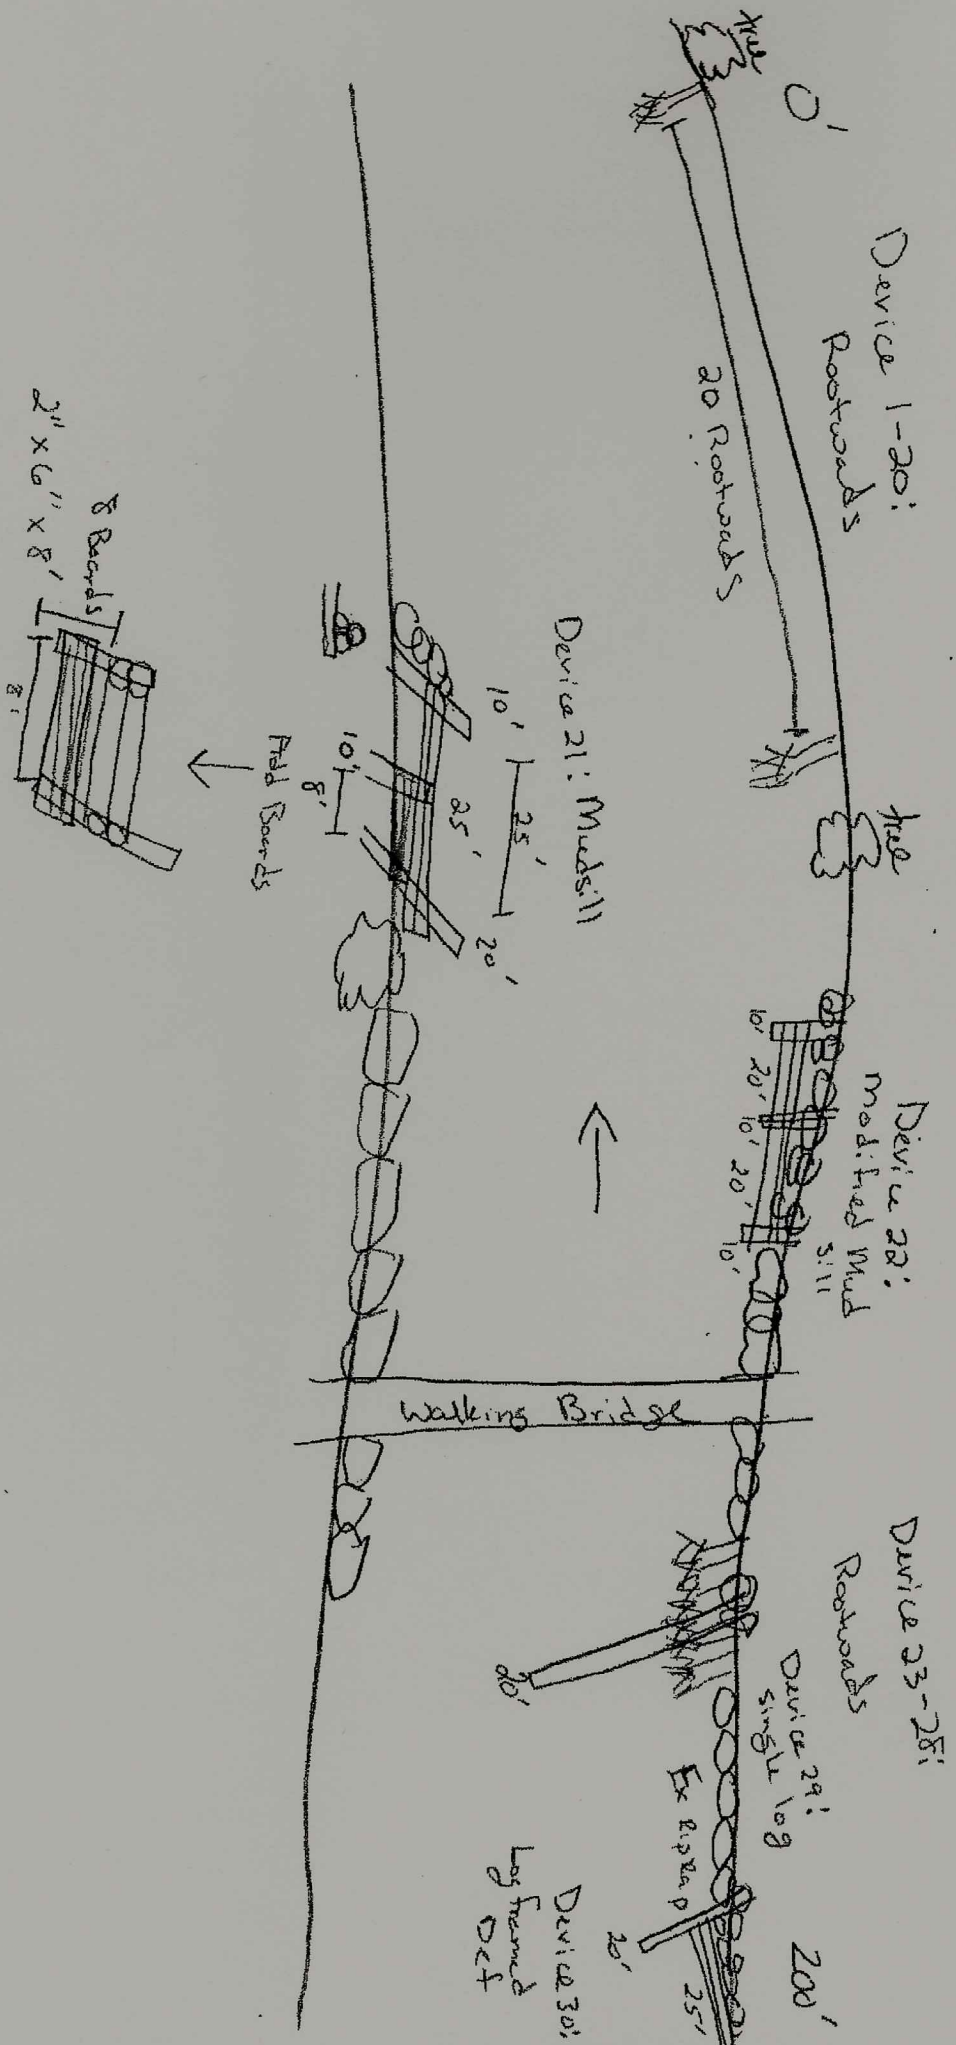 tree
O'
Device 1-20:
Rootwads
20 Rootwads
tree
Device 21: Mudsill
10'
25'
20'
25'
10'
8'
Add Boards
8 Boards
2" x 6" x 8'
8'
Device 22:
Modified Mud
sill
10'
20'
10'
20'
10'
Walking Bridge
Device 23-28:
Rootwads
Device 29:
single log
20'
Ex RipRap
200'
20'
25'
Device 30:
Log framed
Def